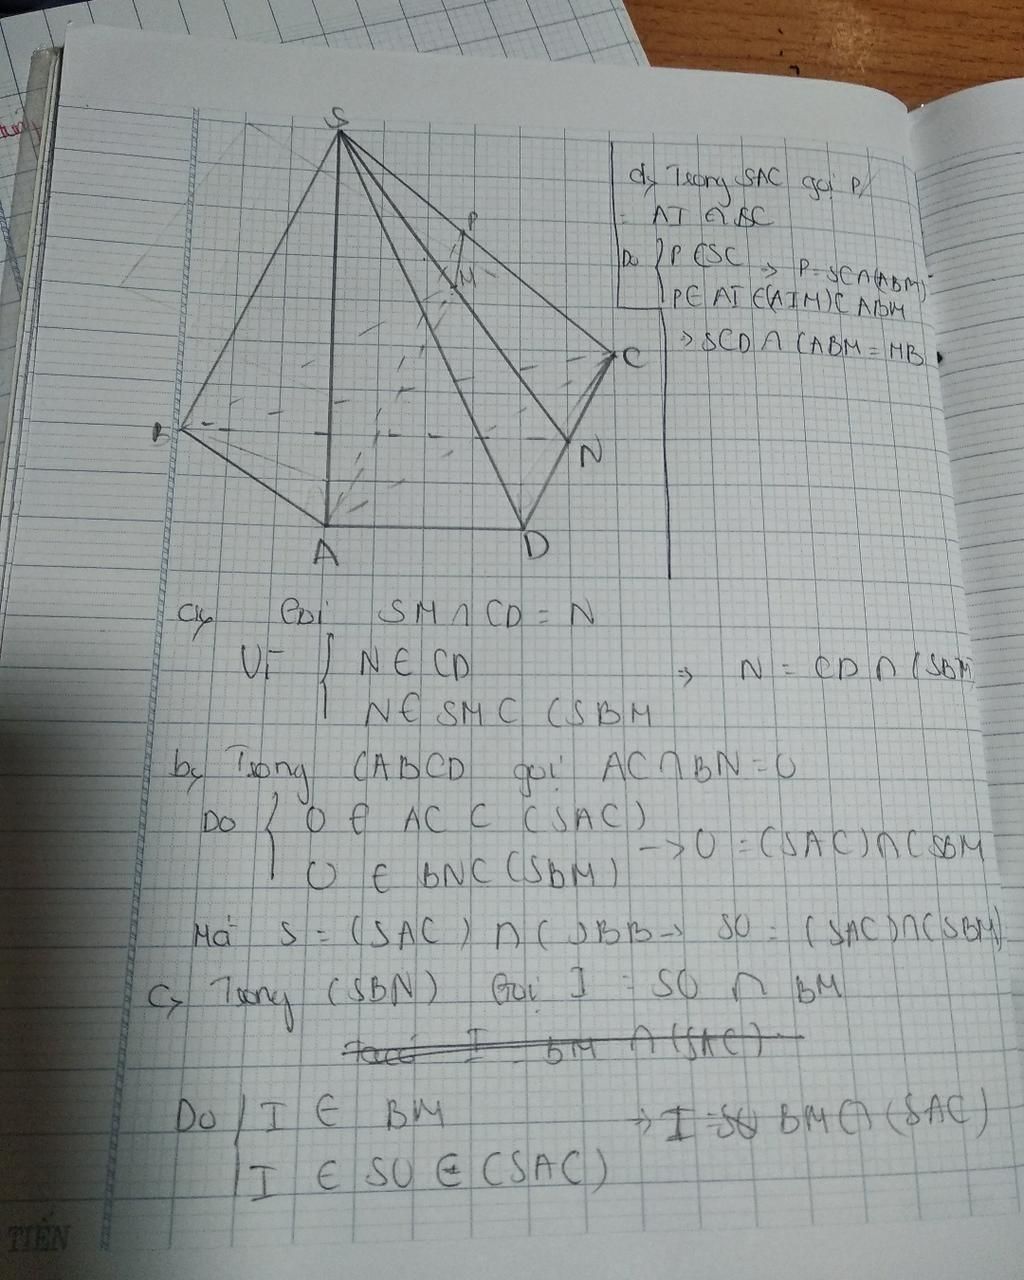 S
P
M
C
B
N
A
D
d, Trong SAC gọi P
= AI ∩ SC
Do { P ∈ SC => P = SC ∩ (ABM)
P ∈ AI ⊂ (AIM) ⊂ ABM
=> SCD ∩ (ABM = MB
a, Gọi SM ∩ CD = N
Vì { N ∈ CD => N = CD ∩ (SBM
N ∈ SM ⊂ (SBM
b, Trong (ABCD gọi AC ∩ BN = O
Do { O ∈ AC ⊂ (SAC)
-> O = (SAC) ∩ (SBM
O ∈ BN ⊂ (SBM)
Mà S = (SAC) ∩ (SBB -> SO = (SAC) ∩ (SBM)
c, Trong (SBN) Gọi I = SO ∩ BM
I = BM ∩ (SAC)
Do { I ∈ BM => I = SO BM ∩ (SAC)
I ∈ SO ∈ (SAC)
TIẾN